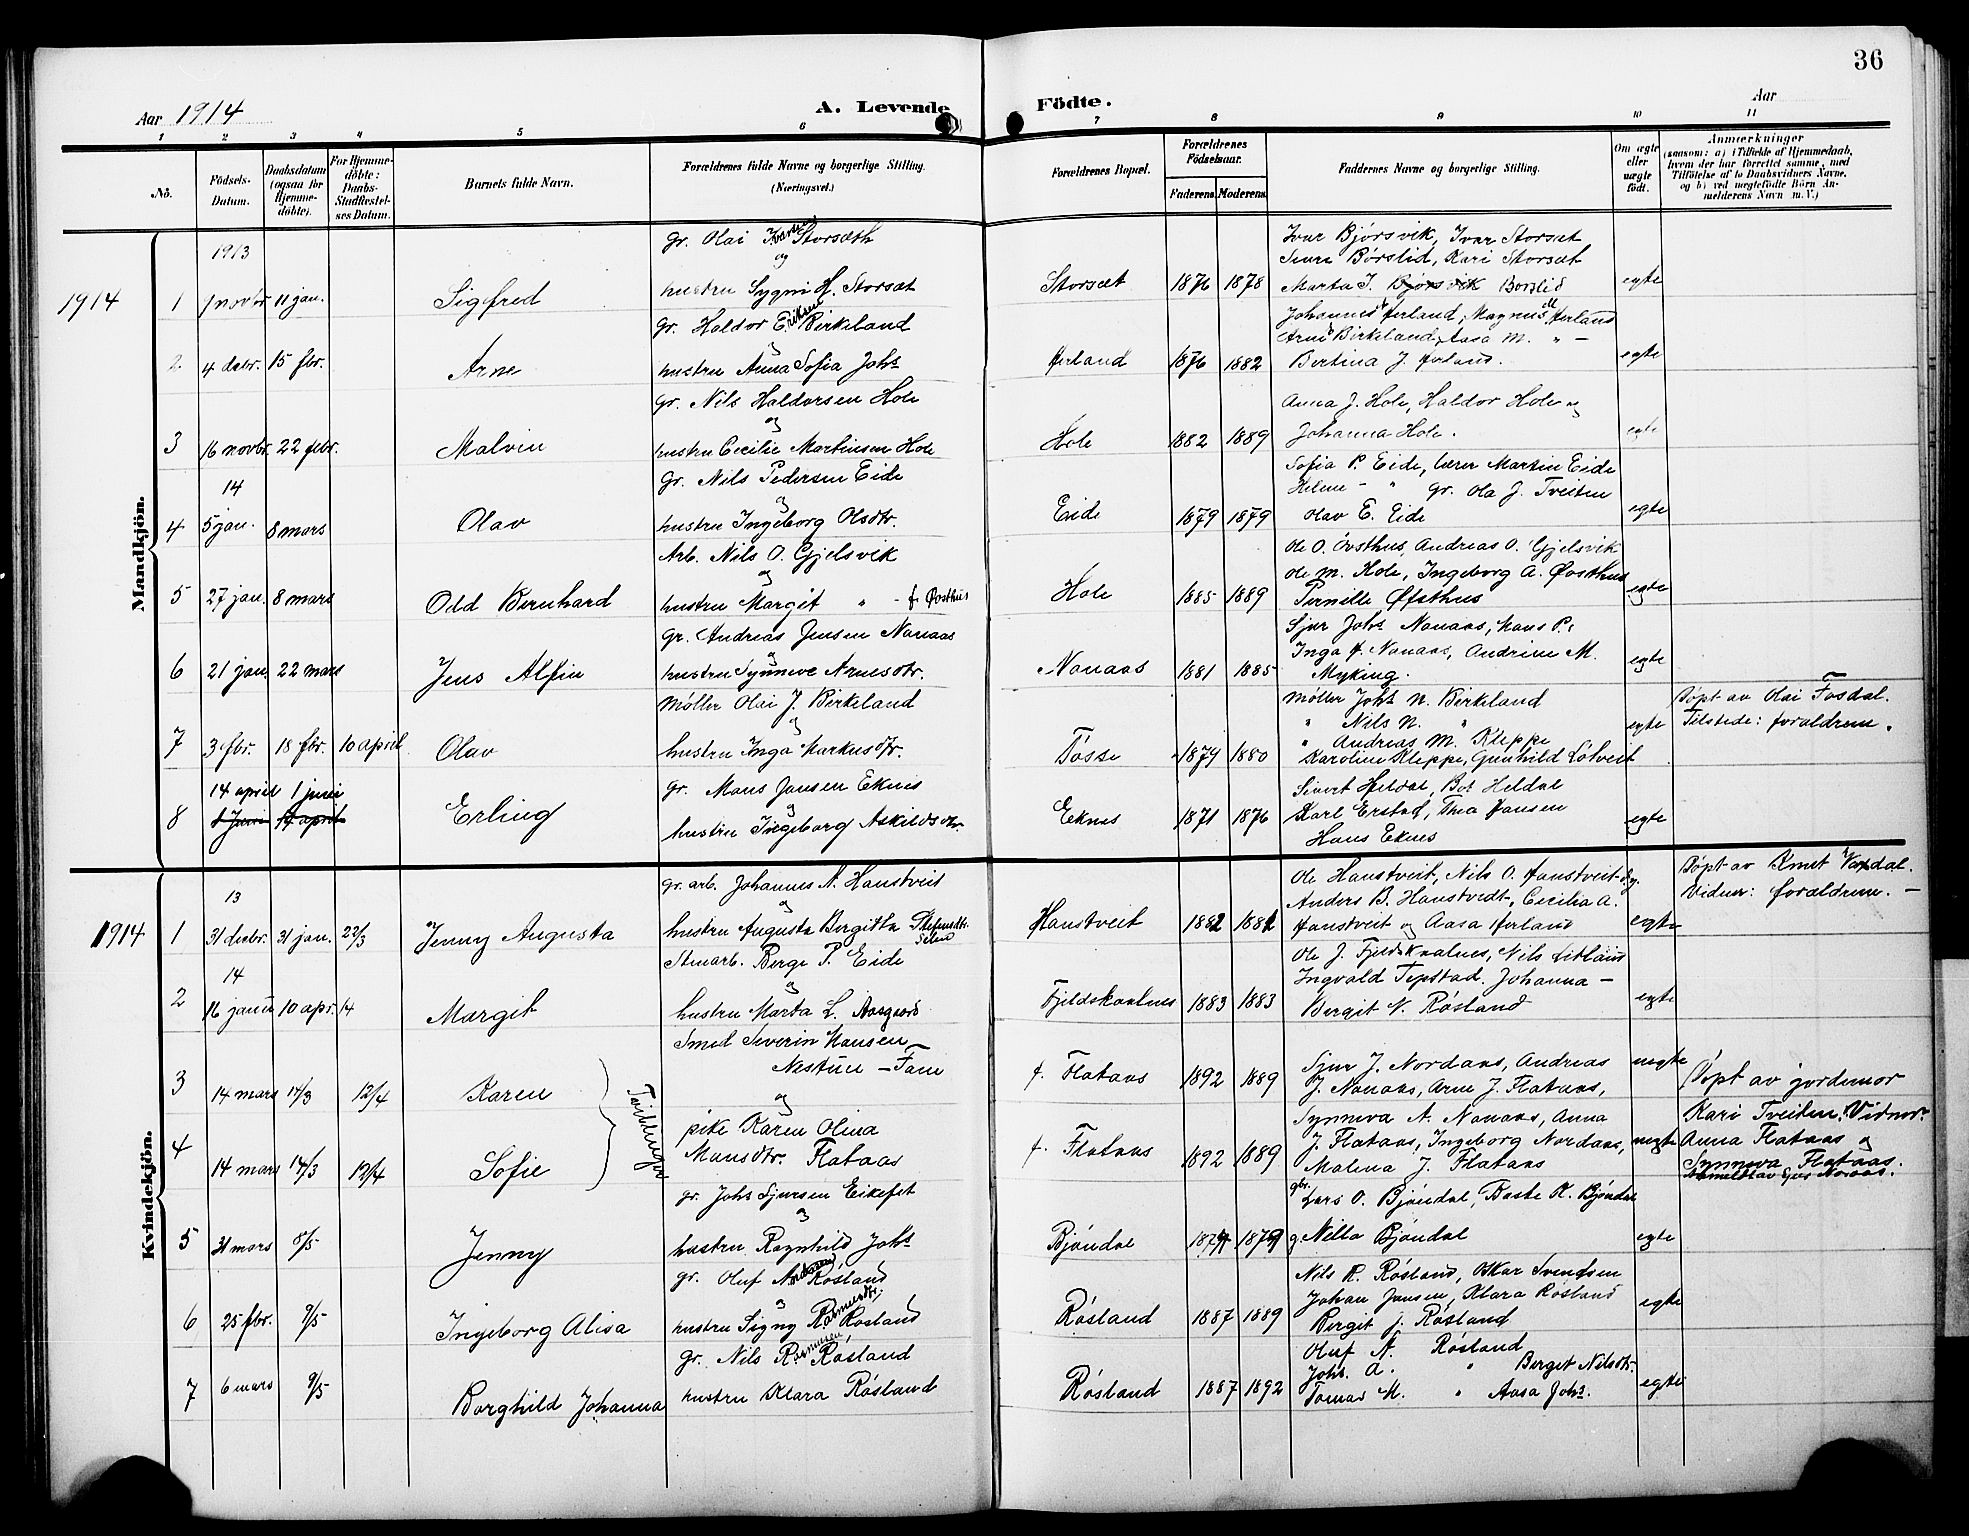 36
Aar 1914
A. Levende Födte.
Aar
1 2 3 4 5 6 7 8 9 10 11
Nö.
Födsels-Datum.
Daabsdatum (ogsaa for Hjemme-döbte).
For Hjemme-döbte: Daabs-Stadfæstel-ses Datum.
Barnets fulde Navn.
Forældrenes fulde Navne og borgerlige Stilling. (Næringsvei.)
Forældrenes Bopæl.
Forældrenes Födselsaar.
Faderens. Moderens.
Faddernes Navne og borgerlige Stilling.
Om ægte eller uægte födt.
Anmærkninger
(saasom: a) i Tilfælde af Hjemmedaab,
hvem der har forrettet samme, med
Tilföielse af to Daabsvidners Navne.
og b) ved uægtefödte Börn An-
melderens Navn m.V.)
Mandkjön.
1914
1913
1 7 novbr 11 jan. Sigfred
gr. Olai Ivarsen Storsæth
og
hustru Sygni H. Storsæt
Storsæt 1876 1878
Ivar Bjørsvik, Ivar Storsæt
Siure Børslid, Kari Storsæt
Marta I. Bjørsvik Borslid
egte
2 4 debr. 15 fbr. Arne
gr. Haldor Eriksen Birkeland
og
hustru Anna Sofia Johs
Herland 1876 1882
Johannes Herland, Magnus Herland
Arne Birkeland, Aasa M. " –
Bertina J. Herland.
egte
3 16 novbr. 22 febr. Malvin
gr. Nils Haldorsen Hole
og
hustru Cecilie Martinsen Hole
Hole 1882 1889
Anna J. Hole, Haldor Hole og
Johanna Hole.
egte
14
4 5 jan. 8 mars Olav
gr. Nils Pedersen Eide
og
hustru Ingeborg Olsdtr.
Eide 1879 1879
Sofia P. Eide, lærer Martin Eide
Helene – " gr. Ola J. Tveiten
Olav E. Eide
egte
5 27 jan. 8 mars Odd Bernhard
Arb. Nils O. Gjelsvik
og
hustru Margit " – f. Øvsthus
Hole 1885 1889
Ole O. Øvsthus, Andreas O. Gjelsvik
Ole M. Hole, Ingeborg A. Øvsthus
Pernille Øfsthus
egte
6 21 jan. 22 mars Jens Alfin
gr. Andreas Jensen Nonaas
og
hustru Synneve Arnesdtr.
Nonaas 1881 1885
Sjur Johs Nonaas, Hans P.
Inga A. Nonaas, Andrine M.
Myking.
egte
7 3 fbr. 18 fbr. 10 april Olav
Møller Olai J. Birkeland
og
hustru Inga Markusdtr.
Tøsse 1879 1880
Møller Johs N. Birkeland
" Nils N. "
" Andreas M. Kleppe
Karoline Kleppe, Gunhild Løtveit
egte
Døpt av Olai Fosdal.
Tilstede: foraldrene.
8 14 april 1 juni Erling
1 Juni 14 april
gr. Mons Jansen Eknes
og
hustru Ingeborg Askildsdtr.
Eknes 1871 1876
Sivert Heldal, Bot Heldal
Karl Erstad, Thea Hansen
Hans Eknes
egte
Kvindekjön.
1914
13
1 31 decbr. 31 jan. 22/3 Jenny Augusta
gr. arb. Johannes N. Hanstveit
og
hustru Augusta Bergitta
Hanstveit 1882 1881
Ole Hanstveit, Nils O. Hanstveit
Anders B. Hanstvedt, Cecilia A.
Hanstveit og Aasa Herland
egte
Døpt av Knut Vaxdal.
Vidner: foraldrene. –
14
2 16 januar 10 apr. 14 Margit
Stenarb. Berge P. Eide
og
hustru Marta L. Aasgaard
Fjeldskaalnes 1883 1883
Ole J. Fjeldskaalnes, Nils
Ingvald Tepstad. Johanna –
Bergit N. Røsland
egte
3 14 mars 14/3 12/4 Karen
Tvillinger
Smed Severin Hansen
Nestun – Fane
og
pike Karen Olina
Monsdtr. Flataas
f. Flataas 1892 1889
Sjur J. Nordaas, Andreas
J. Nonaas, Arne J. Flataas,
uegte
Døpt av jordemor
Kari Tveiten. Vidner:
Anna Flataas og
Synneva Flataas.
4 14 mars 14/3 12/4 Sofie
f. Flataas 1892 1889
Synneva A. Nonaas, Anna
J. Flataas, Ingeborg Nordaas,
Malena J. Flataas
uegte
5 31 mars 8/5 Jenny
gr. Johs Sjursen Eikefet
og
hustru Ragnhild Johs
Bjøndal 1879 1879
gbr. Lars O. Bjøndal, Baste K. Bjøndal
g. Nilla Bjøndal
egte
6 25 fbr. 9/5 Ingeborg Alisa
gr. Oluf Andersen Røsland
og
hustru Signy Rasmusdtr. Røsland
Røsland 1887 1889
Nils R. Røsland, Oskar Svendsen
Johan Jansen, Klara Røsland
Bergit J. Røsland
egte
7 6 mars 9/5 Borghild Johanna
gr. Nils Rasmussen, Røsland
hustru Klara Røsland
Røsland 1887 1892
Oluf A. Røsland
Johs. A. " Berget Nilsdtr.
Tomas K. " Aasa Johs.
egte